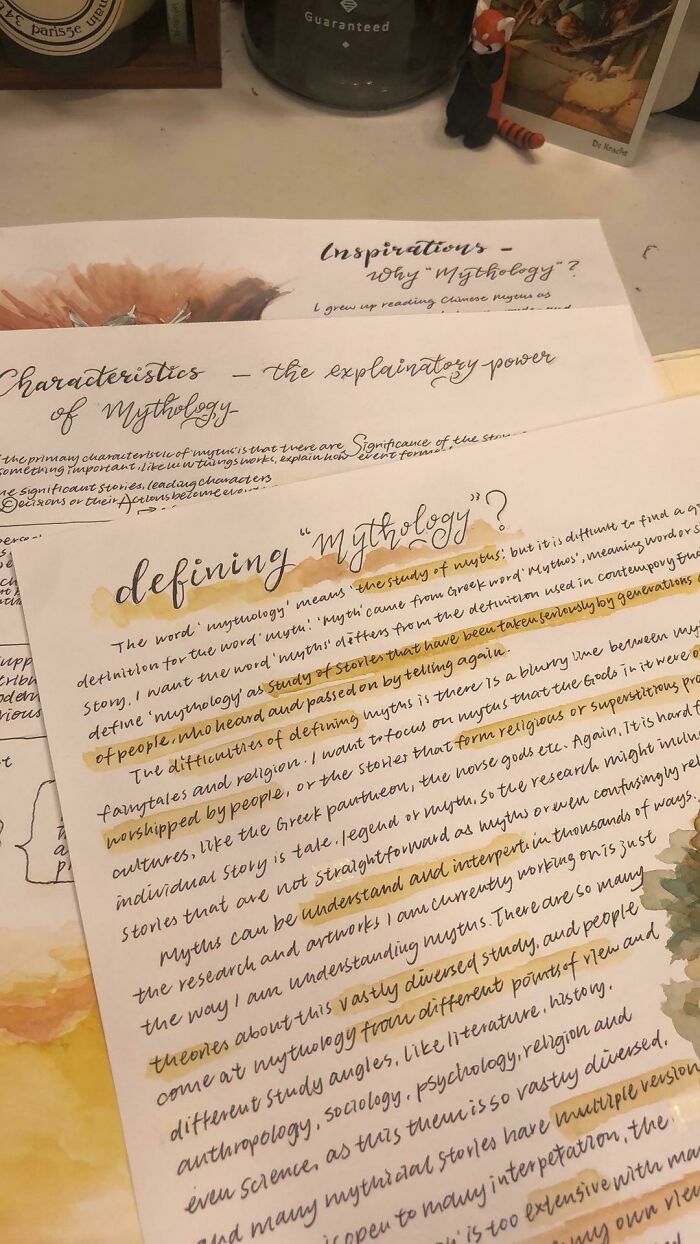 paris5e
34 b
Guaranteed
De Kracht
Inspirations -
Why "Mythology"?
I grew up reading Chinese myths as
Characteristics - the explainatory power
of Mythology
the primary characteristic of myths is that there are Significance of the
something important, like how things works, explain how event
significant stories, leading characters
Decisions or their Actions become
defining "Mythology"?
The word 'mythology' means 'the study of myths', but it is difficult to find a
definition for the word 'myth'. 'Myth' came from Greek word 'Mythos', meaning word or
story. I want the word 'myths' differs from the definition used in contempory
define 'mythology' as study of stories that have been taken seriously by generations
of people, who heard and passed on by telling again.
The difficulties of defining myths is there is a blurry line between
fairytales and religion. I want to focus on myths that the Gods in it were
worshipped by people, or the stories that form religious or superstitious
cultures, like the Greek pantheon, the norse gods etc. Again, it is hard
individual story is tale, legend or myth, so the research might
stories that are not straightforward as myths or even confusingly
Myths can be understand and interpert in thousands of ways.
the research and artworks I am currently working on is just
the way I am understanding myths. There are so many
theories about this vastly diversed study, and people
come at mythology from different points of view and
different study angles, like literature, history,
anthropology, sociology, psychology, religion and
even science, as this them is so vastly diversed,
and many mythicial stories have multiple version
is open to many interpetation, the
is too extensive with
my own view